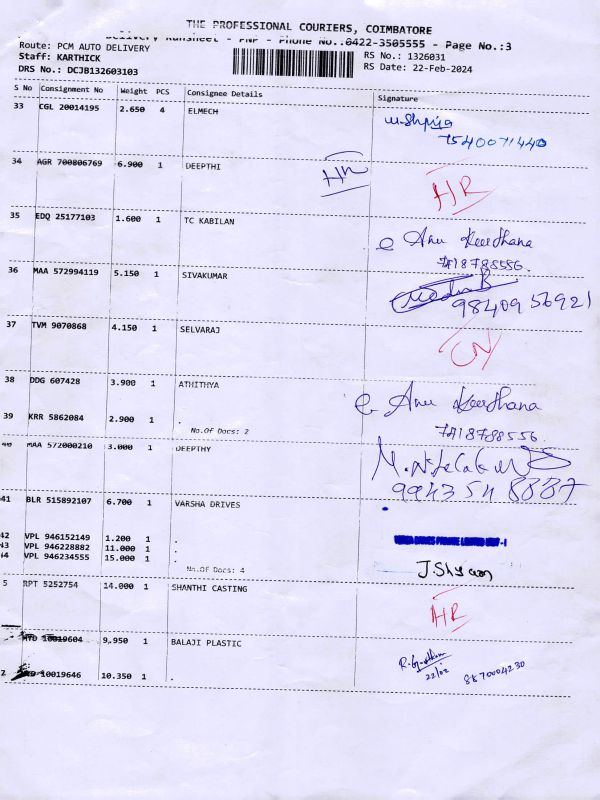 THE PROFESSIONAL COURIERS, COIMBATORE
Delivery Runsheet - PNP - Phone No.:0422-3505555 - Page No.:3
Route: PCM AUTO DELIVERY
RS No.: 1326031
Staff: KARTHICK
RS Date: 22-Feb-2024
DRS No.: DCJB132603103
S No Consignment No Weight PCS Consignee Details Signature
33 CGL 20014195 2.650 4 ELMECH
7540071440
34 AGR 700806769 6.900 1 DEEPTHI
HR HR
35 EDQ 25177103 1.600 1 TC KABILAN
Anu Keerdhana
7418788556.
36 MAA 572994119 5.150 1 SIVAKUMAR
9840956921
37 TVM 9070868 4.150 1 SELVARAJ
38 DDG 607428 3.900 1 ATHITHYA
Anu Keerdhana
7418788556.
39 KRR 5862084 2.900 1 .
No.Of Docs: 2
40 MAA 572000210 3.000 1 DEEPTHY
9943548887
41 BLR 515892107 6.700 1 VARSHA DRIVES
VARSA DRIVES PRIVATE LIMITED UNIT - I
42 VPL 946152149 1.200 1 .
43 VPL 946228882 11.000 1 .
44 VPL 946234555 15.000 1 .
No.Of Docs: 4
J.Shyam
5 RPT 5252754 14.000 1 SHANTHI CASTING
HR
10019604 9,950 1 BALAJI PLASTIC
22/02 8870004230
10019646 10.350 1 .